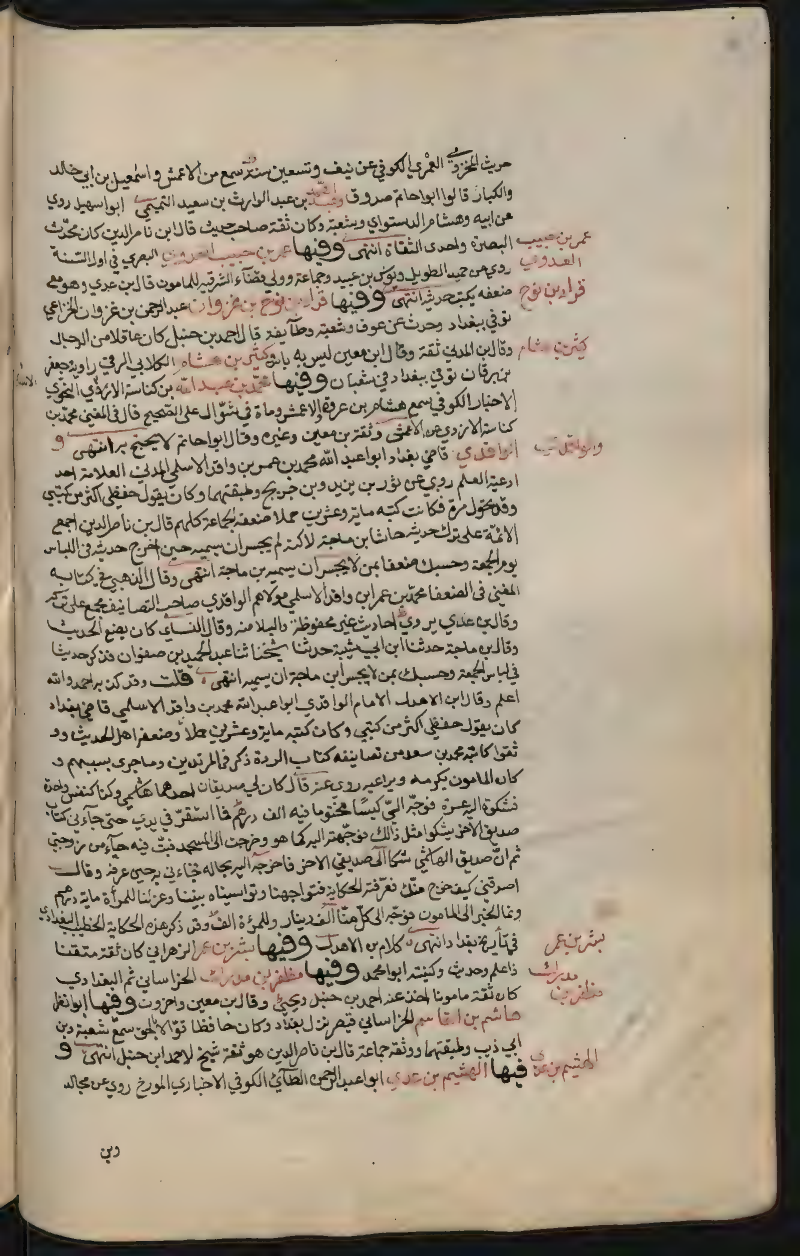 حريث المخزومي العمري الكوفي عن نيف وتسعين سنة سمع من الاعمش واسمعيل بن ابي خالد
والكبار قال ابو حاتم صدوق وعبد الصمد بن عبد الوارث بن سعيد التميمي ابو سهيل روي
عن ابيه وهشام الدستواي وشعبة وكان ثقة صاحب حديث قال ابن ناصر الدين كان محدث
البصرة واحدى الثقاة انتهى وفيها عمر بن حبيب العدوي البصري في اول السنة
روي عن حميد الطويل ويونس بن عبيد وجماعة وولي قضاء الشرقية للمامون قال بن عدي وهو مع
ضعفه يكتب حديثه انتهى وفيها قراد بن نوح بن غزوان عبد الرحمن بن غزوان الخزاعي
توفي ببغداد وحدث عن عوف وشعبة وطايفة قال احمد بن حنبل كان عاقلا من الرجال
وقال بن المديني ثقة وقال ابن معين ليس به باس وكثير بن هشام الكلابي الرقي راوية جعفر
بن برقان توفي ببغداد في شعبان وفيها محمد بن عبد الله بن كناسة الازدي النحوي
الاخباري الكوفي سمع هشام بن عروة والاعمش ومات في شوال على الصحيح قال في المغني محمد بن
كناسة الازدي عن الاعمش وثقة بن معين وغيره وقال ابو حاتم لا يحتج به انتهى و
الواقدي قاضي بغداد ابو عبد الله محمد بن عمر بن واقد الاسلمي المدني العلامة احد
اوعية العلم روي عن ثور بن يزيد وبن جريج وطبقتهما وكان يقول حفظي اكثر من كتبي
وقد تحول مرة فكانت كتبه ماية وعشرين حملا ضعفه الجماعة كلهم قال بن ناصر الدين اجمع
الائمة على ترك حديثه حاشا بن ماجة لاكنه لم يجسر ان يسميه حين اخرج حديثه في اللباس
يوم الجمعة وحسبك ضعفا بمن لا يجسر ان يسميه بن ماجة انتهى وقال الذهبي في كتابه
المغني في الضعفا محمد بن عمر ابن واقد الاسلمي مولاهم الواقدي صاحب التصانيف مجمع على تركه
وقال بن عدي يروي احاديث غير محفوظة والبلا منه وقال النساي كان يضع الحديث
وقال بن ماجة حدثنا ابن ابي شيبة حدثنا شيخنا ثنا عبد الحميد بن صفوان فذكر حديثا
في لباس الجمعة وحسبك بمن لا يجسر ابن ماجة ان يسميه انتهى قلت وقد كذبه احمد والله
اعلم وقال ابن الاهدل الامام الواقدي ابو عبد الله محمد بن واقد الاسلمي قاضي بغداد
كان يقول حفظي اكثر من كتبي وكان كتبه ماية وعشرين حملا وضعفه اهل الحديث وو
ثقوا كاتبه محمد بن سعد من تصانيفه كتاب الردة ذكر فيه المرتدين وما جرى بسببهم و
كان المامون يكرمه ويراعيه روي عنه قال كان لي صديقان احدهما هاشمي وكنا كنفس واحدة
فشكوت اليه عسرة فوجه الي كيسا مختوما فيه الف درهم فما استقر في يدي حتى جاءني كتاب
صديقي الاخر يشكوا مثل ذالك فوجهته اليه كما هو وخرجت الى المسجد فبت فيه حياء من زوجتي
ثم ان صديقي الهاشمي شكا الى صديقي الاخر فاخرج اليه بحاله فجاءني به حين عرفه وقال
اصدقني كيف خرج منك فعرفته الحكاية فتواجهنا وتواسيناه بيننا وعزلنا للمراة ماية درهم
ونما الخبر الى المامون فوجه الى كل منا الف دينار وللمرة الف وقد ذكر هذه الحكاية الخطيب البغدادي
في تاريخ بغداد انتهى كلام بن الاهدل وفيها بشر بن عمر الزهراني كان ثقة متقنا
ذا علم وحديث وكنيته ابو محمد وفيها مظفر بن مدرك الخراساني ثم البغدادي
كان ثقة مامونا اخذ عنه احمد بن حنبل ويحيى وقال بن معين واخرون وفيها ابو النظر
هاشم بن القاسم الخراساني قيصر نزل بغداد وكان حافظا قوالا بالحق سمع شعبة وبن
ابي ذيب وطبقتهما ووثقه جماعة قال بن ناصر الدين هو ثقة شيخ لاحمد ابن حنبل انتهى و
فيها الهيثم بن عدي ابو عبد الرحمن الطائي الكوفي الاخباري المورخ روي عن مجالد
وبن
عمر بن حبيب
العدوي
قراد بن نوح
كثير بن هشام
بشر بن عمر
مظفر بن
مدرك
الهيثم بن عدي